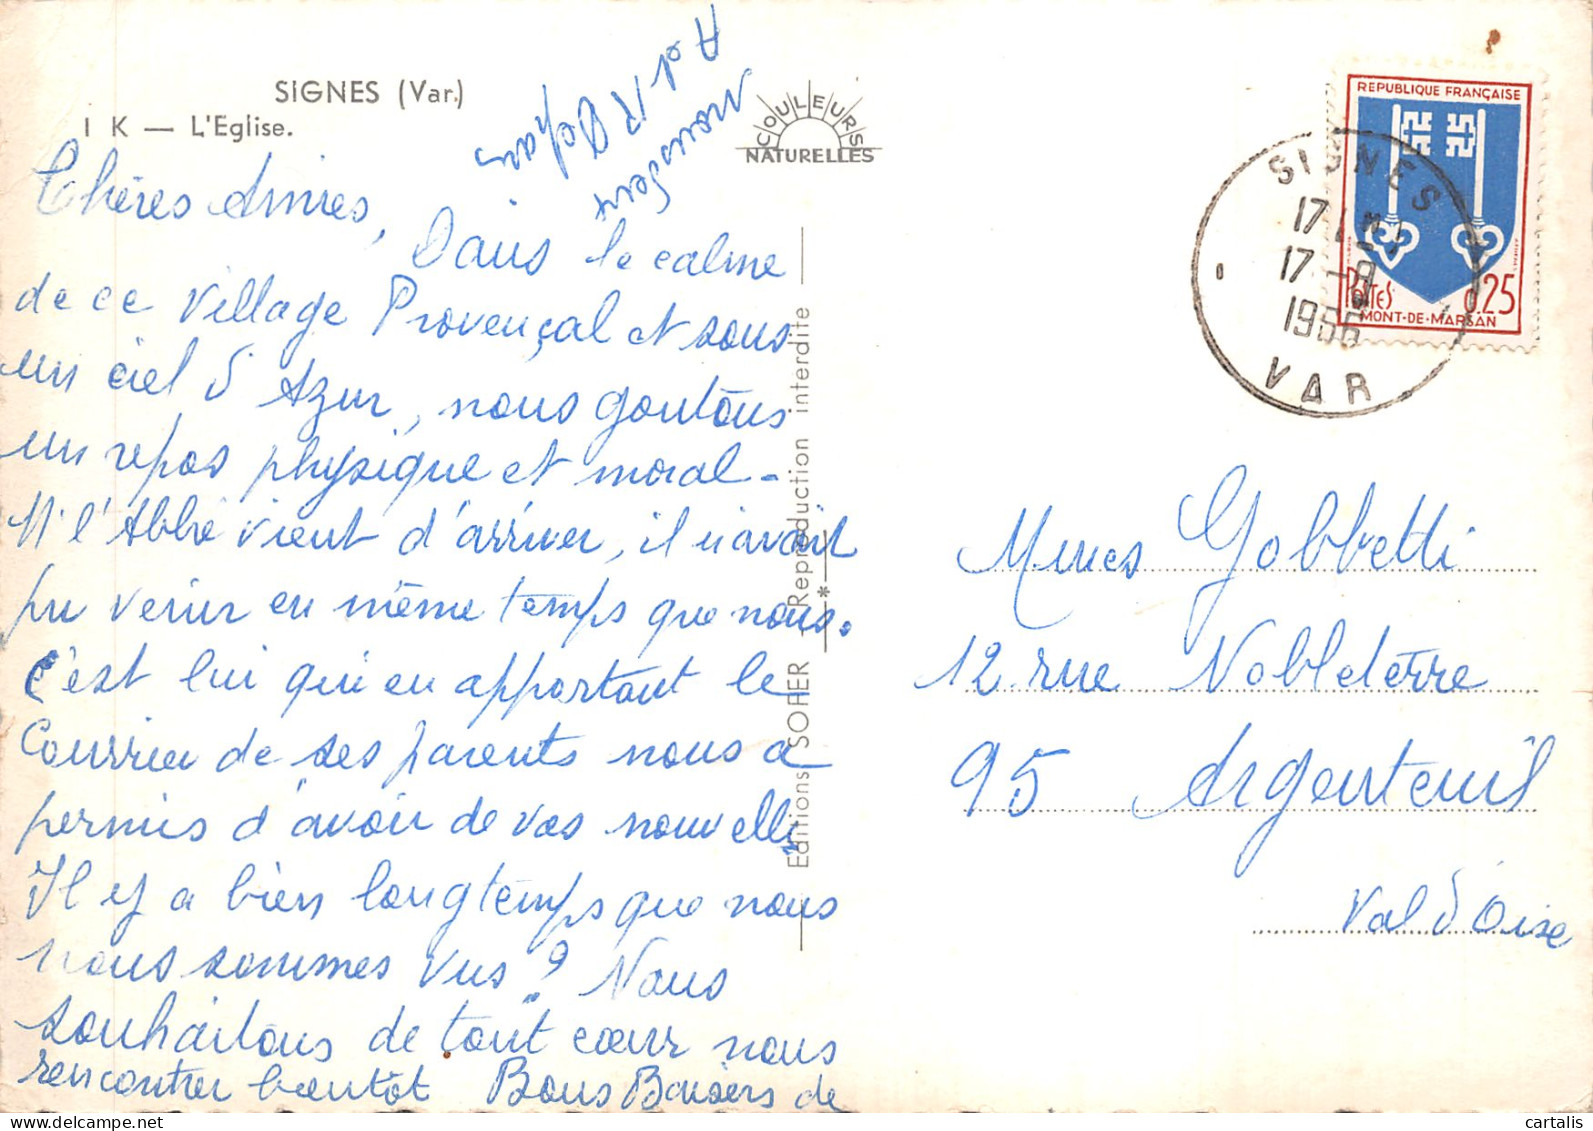 SIGNES (Var.)
I K — L'Eglise.
Chères Amies,
Dans le calme
de ce village Provençal et sous
un ciel d'Azur, nous goutons
un repos physique et moral -
M. l'Abbé vient d'arriver, il n'avait
pu venir en même temps que nous.
C'est lui qui en apportant le
Courrier de ses parents nous a
permis d'avoir de vos nouvelles
Il y a bien longtemps que nous
nous sommes vus ? Nous
souhaitons de tout cœur nous
rencontrer bientôt Bons Baisers de
COULEURS
NATURELLES
Editions SOFER - Reproduction interdite
*
REPUBLIQUE FRANÇAISE
POSTES
0.25
MONT-DE-MARSAN
SIGNES
17 H
17 -9
1966
VAR
Mmes Gobbetti
12 rue Nobleterre
95 Argenteuil
Val d'Oise
cartalis